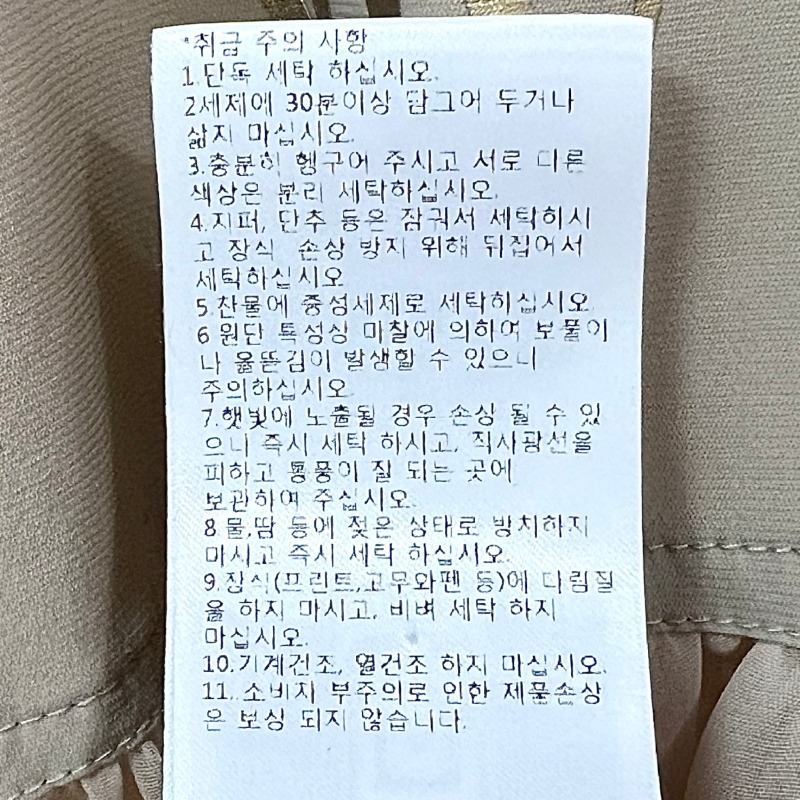 *취급 주의 사항
1.단독 세탁 하십시오.
2세제에 30분이상 담그어 두거나
삶지 마십시오.
3.충분히 헹구어 주시고 서로 다른
색상은 분리 세탁하십시오.
4.지퍼, 단추 등은 잠궈서 세탁하시
고 장식 손상 방지 위해 뒤집어서
세탁하십시오
5.찬물에 중성세제로 세탁하십시오
6 원단 특성상 마찰에 의하여 보풀이
나 올뜯김이 발생할 수 있으니
주의하십시오.
7.햇빛에 노출될 경우 손상 될 수 있
으니 즉시 세탁 하시고, 직사광선을
피하고 통풍이 잘 되는 곳에
보관하여 주십시오.
8 물,땀 등에 젖은 상태로 방치하지
마시고 즉시 세탁 하십시오.
9.장식(프린트,고무와펜 등)에 다림질
을 하지 마시고, 비벼 세탁 하지
마십시오.
10.기계건조, 열건조 하지 마십시오.
11. 소비자 부주의로 인한 제품손상
은 보상 되지 않습니다.